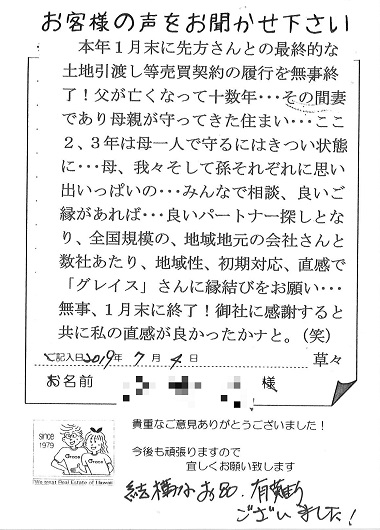 お客様の声をお聞かせ下さい
本年1月末に先方さんとの最終的な
土地引渡し等売買契約の履行を無事終
了！父が亡くなって十数年･･･その間妻
であり母親が守ってきた住まい･･･ここ
2、3年は母一人で守るにはきつい状態
に･･･母、我々そして孫それぞれに思い
出いっぱいの･･･みんなで相談、良いご
縁があれば･･･良いパートナー探しとな
り、全国規模の、地域地元の会社さんと
数社あたり、地域性、初期対応、直感で
「グレイス」さんに縁結びをお願い･･･
無事、1月末に終了！御社に感謝すると
共に私の直感が良かったかナと。（笑）
草々
ご記入日2019年 7月 4日
お名前 様
貴重なご意見ありがとうございました！
今後も頑張りますので
宜しくお願い致します
since
1979
Grace
Grace
We treat Real Estate of Hawaii
結構なお品、有難う
ございました！